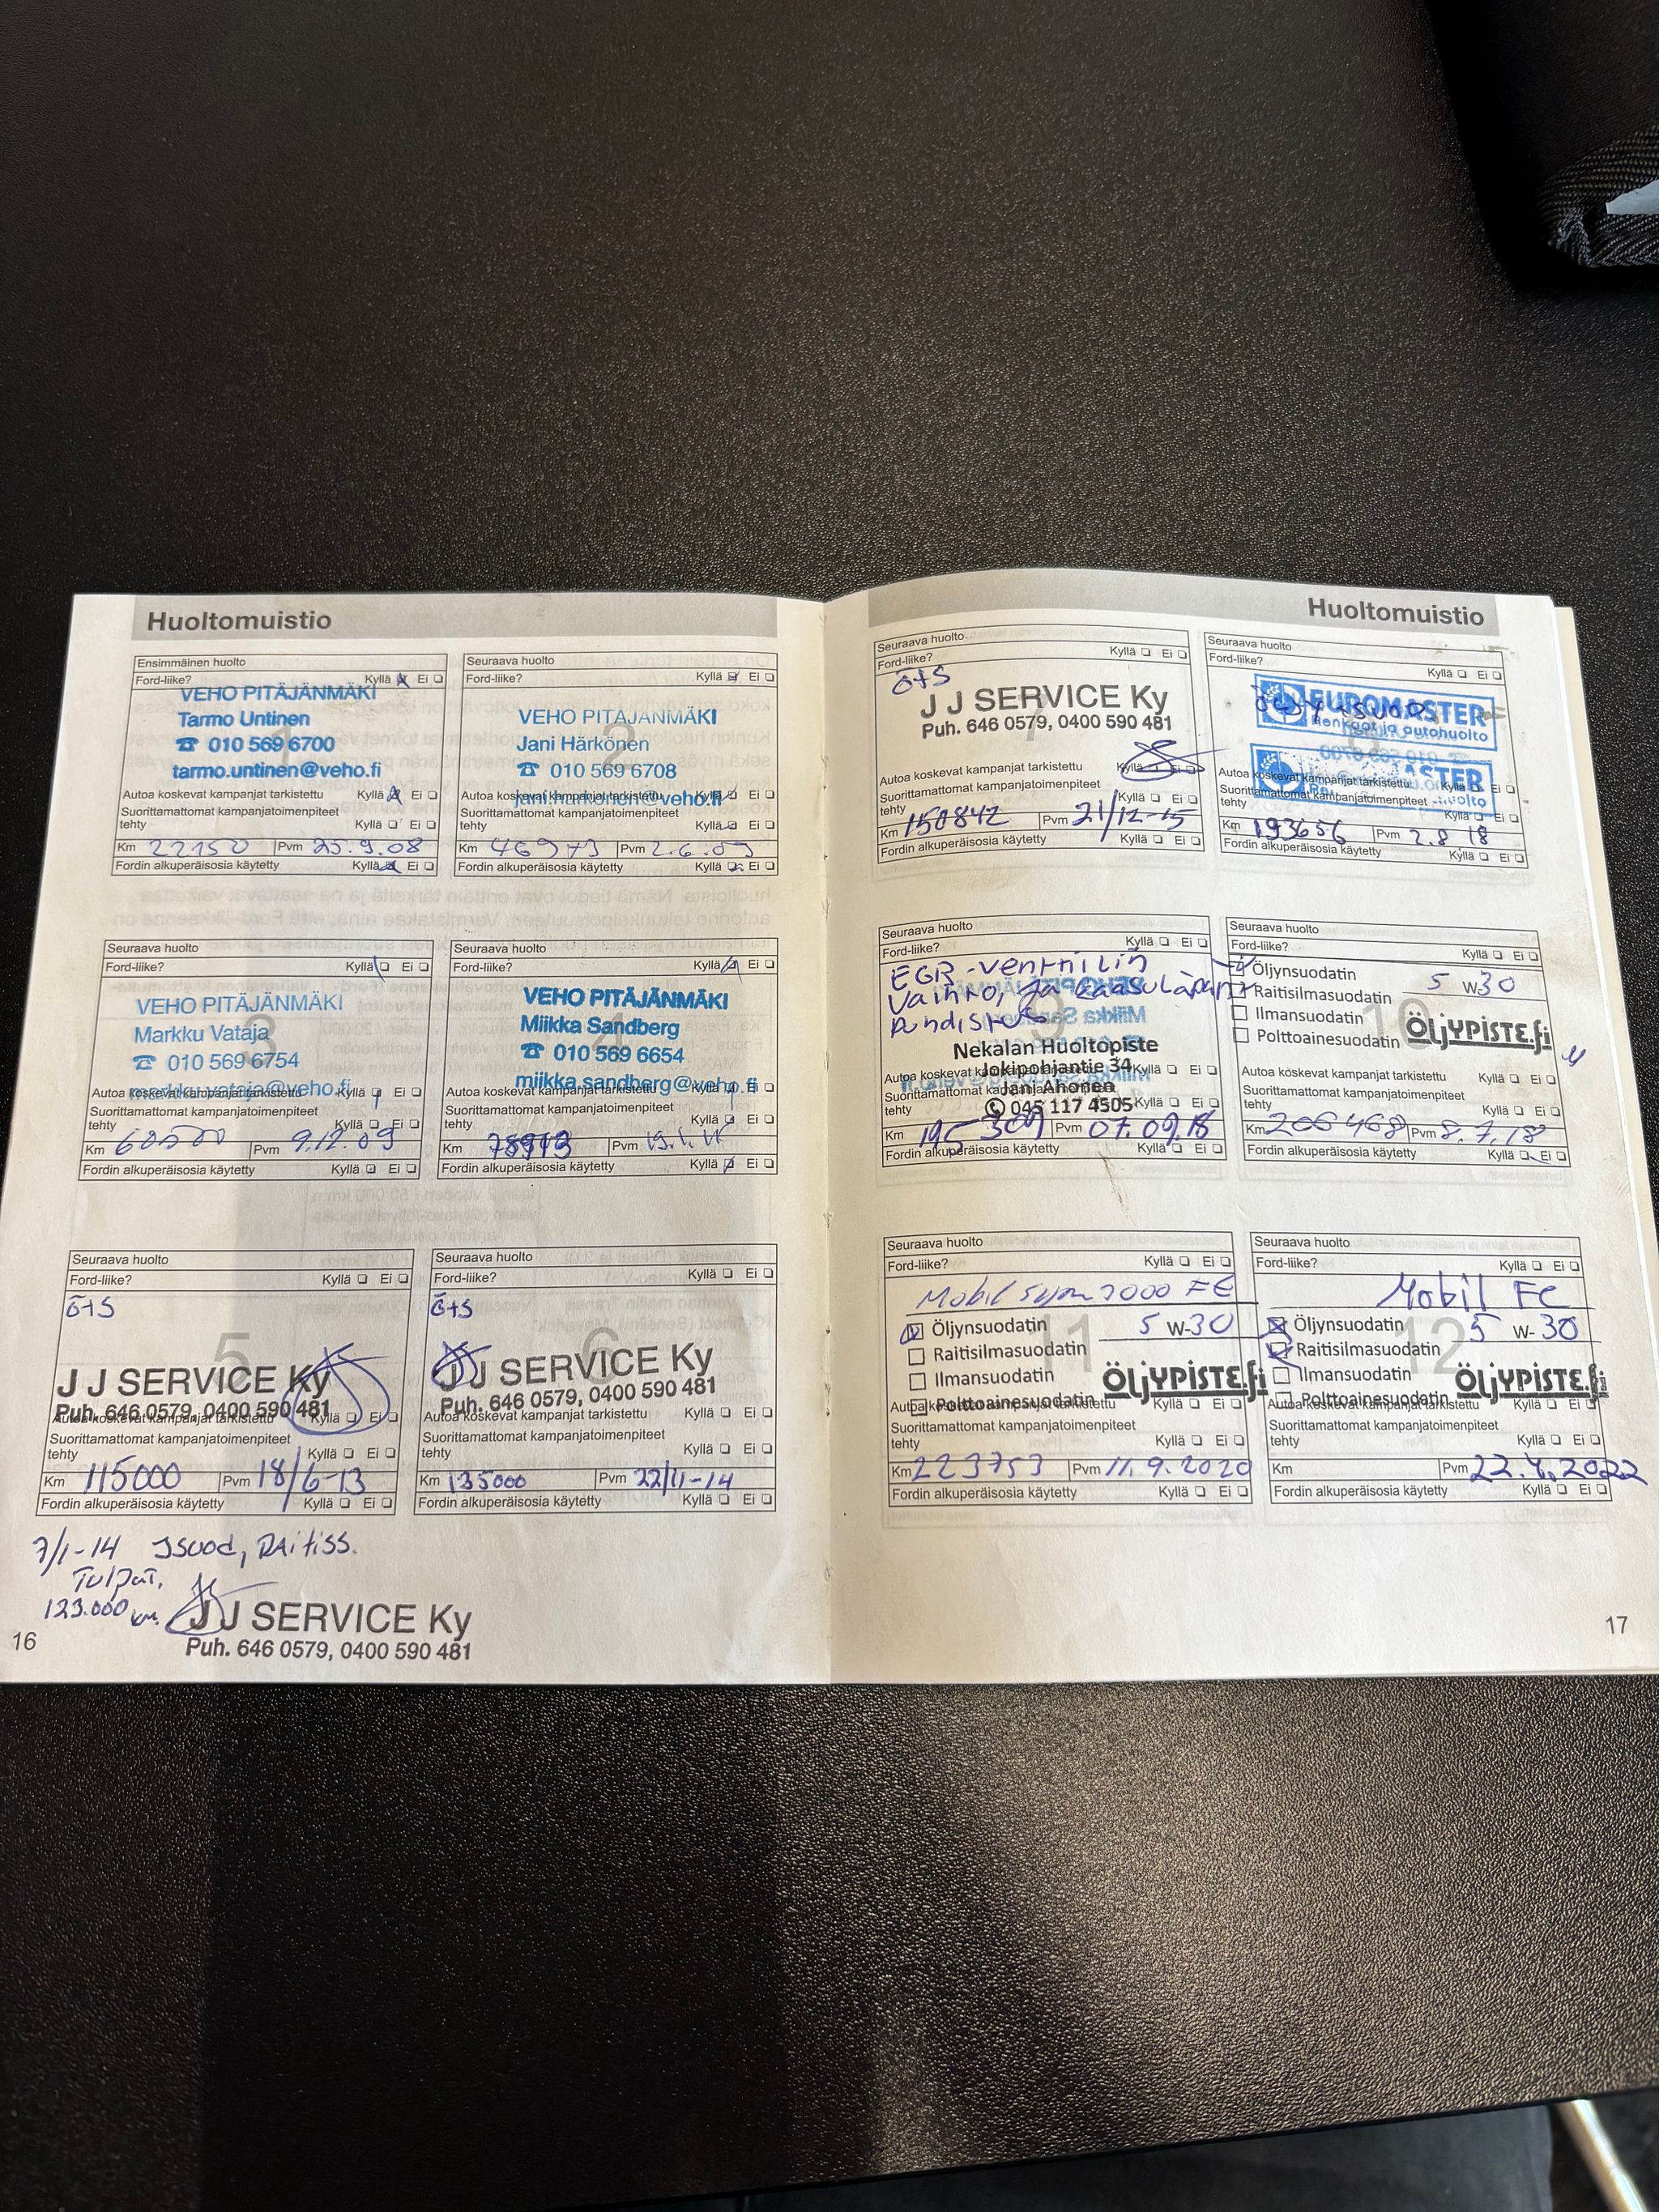 Huoltomuistio
Ensimmäinen huolto
Ford-liike? Kyllä Ei
VEHO PITÄJÄNMÄKI
Tarmo Untinen
☎ 010 569 6700
tarmo.untinen@veho.fi
1
Autoa koskevat kampanjat tarkistettu Kyllä Ei
Suorittamattomat kampanjatoimenpiteet
tehty Kyllä Ei
Km 22150 Pvm 25.9.08
Fordin alkuperäisosia käytetty Kyllä Ei
Seuraava huolto
Ford-liike? Kyllä Ei
VEHO PITÄJÄNMÄKI
Jani Härkönen
☎ 010 569 6708
jani.harkonen@veho.fi
2
Autoa koskevat kampanjat tarkistettu Kyllä
Suorittamattomat kampanjatoimenpiteet
tehty Kyllä Ei
Km 46973 Pvm 2.6.09
Fordin alkuperäisosia käytetty Kyllä Ei
Seuraava huolto
Ford-liike? Kyllä Ei
VEHO PITÄJÄNMÄKI
Markku Vataja
☎ 010 569 6754
markku.vataja@veho.fi
3
Autoa koskevat kampanjat tarkistettu Kyllä Ei
Suorittamattomat kampanjatoimenpiteet
tehty Kyllä Ei
Km 60500 Pvm 9.12.09
Fordin alkuperäisosia käytetty Kyllä Ei
Seuraava huolto
Ford-liike? Kyllä Ei
VEHO PITÄJÄNMÄKI
Miikka Sandberg
☎ 010 569 6654
miikka.sandberg@veho.fi
4
Autoa koskevat kampanjat tarkistettu Kyllä Ei
Suorittamattomat kampanjatoimenpiteet
tehty Kyllä Ei
Km 78913 Pvm
Fordin alkuperäisosia käytetty Kyllä Ei
Seuraava huolto
Ford-liike? Kyllä Ei
Ö+S
5
J J SERVICE Ky
Puh. 646 0579, 0400 590 481
Autoa koskevat kampanjat tarkistettu Kyllä Ei
Suorittamattomat kampanjatoimenpiteet
tehty Kyllä Ei
Km 115000 Pvm 18/6-13
Fordin alkuperäisosia käytetty Kyllä Ei
Seuraava huolto
Ford-liike? Kyllä Ei
Ö+S
6
J J SERVICE Ky
Puh. 646 0579, 0400 590 481
Autoa koskevat kampanjat tarkistettu Kyllä Ei
Suorittamattomat kampanjatoimenpiteet
tehty Kyllä Ei
Km 135000 Pvm 22/11-14
Fordin alkuperäisosia käytetty Kyllä Ei
7/1-14 Isuod, Raitiss.
Tulpat,
123.000 km.
J J SERVICE Ky
Puh. 646 0579, 0400 590 481
16
Huoltomuistio
Seuraava huolto
Ford-liike? Kyllä Ei
Ö+S
J J SERVICE Ky
Puh. 646 0579, 0400 590 481
7
Autoa koskevat kampanjat tarkistettu Kyllä Ei
Suorittamattomat kampanjatoimenpiteet
tehty Kyllä Ei
Km 150842 Pvm 21/12-15
Fordin alkuperäisosia käytetty Kyllä Ei
Seuraava huolto
Ford-liike? Kyllä Ei
EUROMASTER
Renkaat ja autohuolto
Autoa koskevat kampanjat tarkistettu Kyllä Ei
Suorittamattomat kampanjatoimenpiteet
tehty Kyllä Ei
Km 193656 Pvm 2.8 18
Fordin alkuperäisosia käytetty Kyllä Ei
Seuraava huolto
Ford-liike? Kyllä Ei
EGR-venttiilin
vaihto, ja kaasuläpän
puhdistus
9
Nekalan Huoltopiste
Jokipohjantie 34
Jani Ahonen
045 117 4505
Autoa koskevat kampanjat tarkistettu Kyllä Ei
Suorittamattomat kampanjatoimenpiteet
tehty Kyllä Ei
Km 195309 Pvm 07.09.18
Fordin alkuperäisosia käytetty Kyllä Ei
Seuraava huolto
Ford-liike? Kyllä Ei
Öljynsuodatin 5 W-30
Raitisilmasuodatin
Ilmansuodatin
Polttoainesuodatin
ÖLJYPISTE.fi
10
Autoa koskevat kampanjat tarkistettu Kyllä Ei
Suorittamattomat kampanjatoimenpiteet
tehty Kyllä Ei
Km 206468 Pvm 8.7.18
Fordin alkuperäisosia käytetty Kyllä Ei
Seuraava huolto
Ford-liike? Kyllä Ei
Mobil FE
Öljynsuodatin 5 W-30
Raitisilmasuodatin
Ilmansuodatin
Polttoainesuodatin
ÖLJYPISTE.fi
11
Autoa koskevat kampanjat tarkistettu Kyllä Ei
Suorittamattomat kampanjatoimenpiteet
tehty Kyllä Ei
Km 223753 Pvm 11.9.2020
Fordin alkuperäisosia käytetty Kyllä Ei
Seuraava huolto
Ford-liike? Kyllä Ei
Mobil FE
Öljynsuodatin 5 W-30
Raitisilmasuodatin
Ilmansuodatin
Polttoainesuodatin
ÖLJYPISTE.fi
12
Autoa koskevat kampanjat tarkistettu Kyllä Ei
Suorittamattomat kampanjatoimenpiteet
tehty Kyllä Ei
Km Pvm 22.4.2022
Fordin alkuperäisosia käytetty Kyllä Ei
17